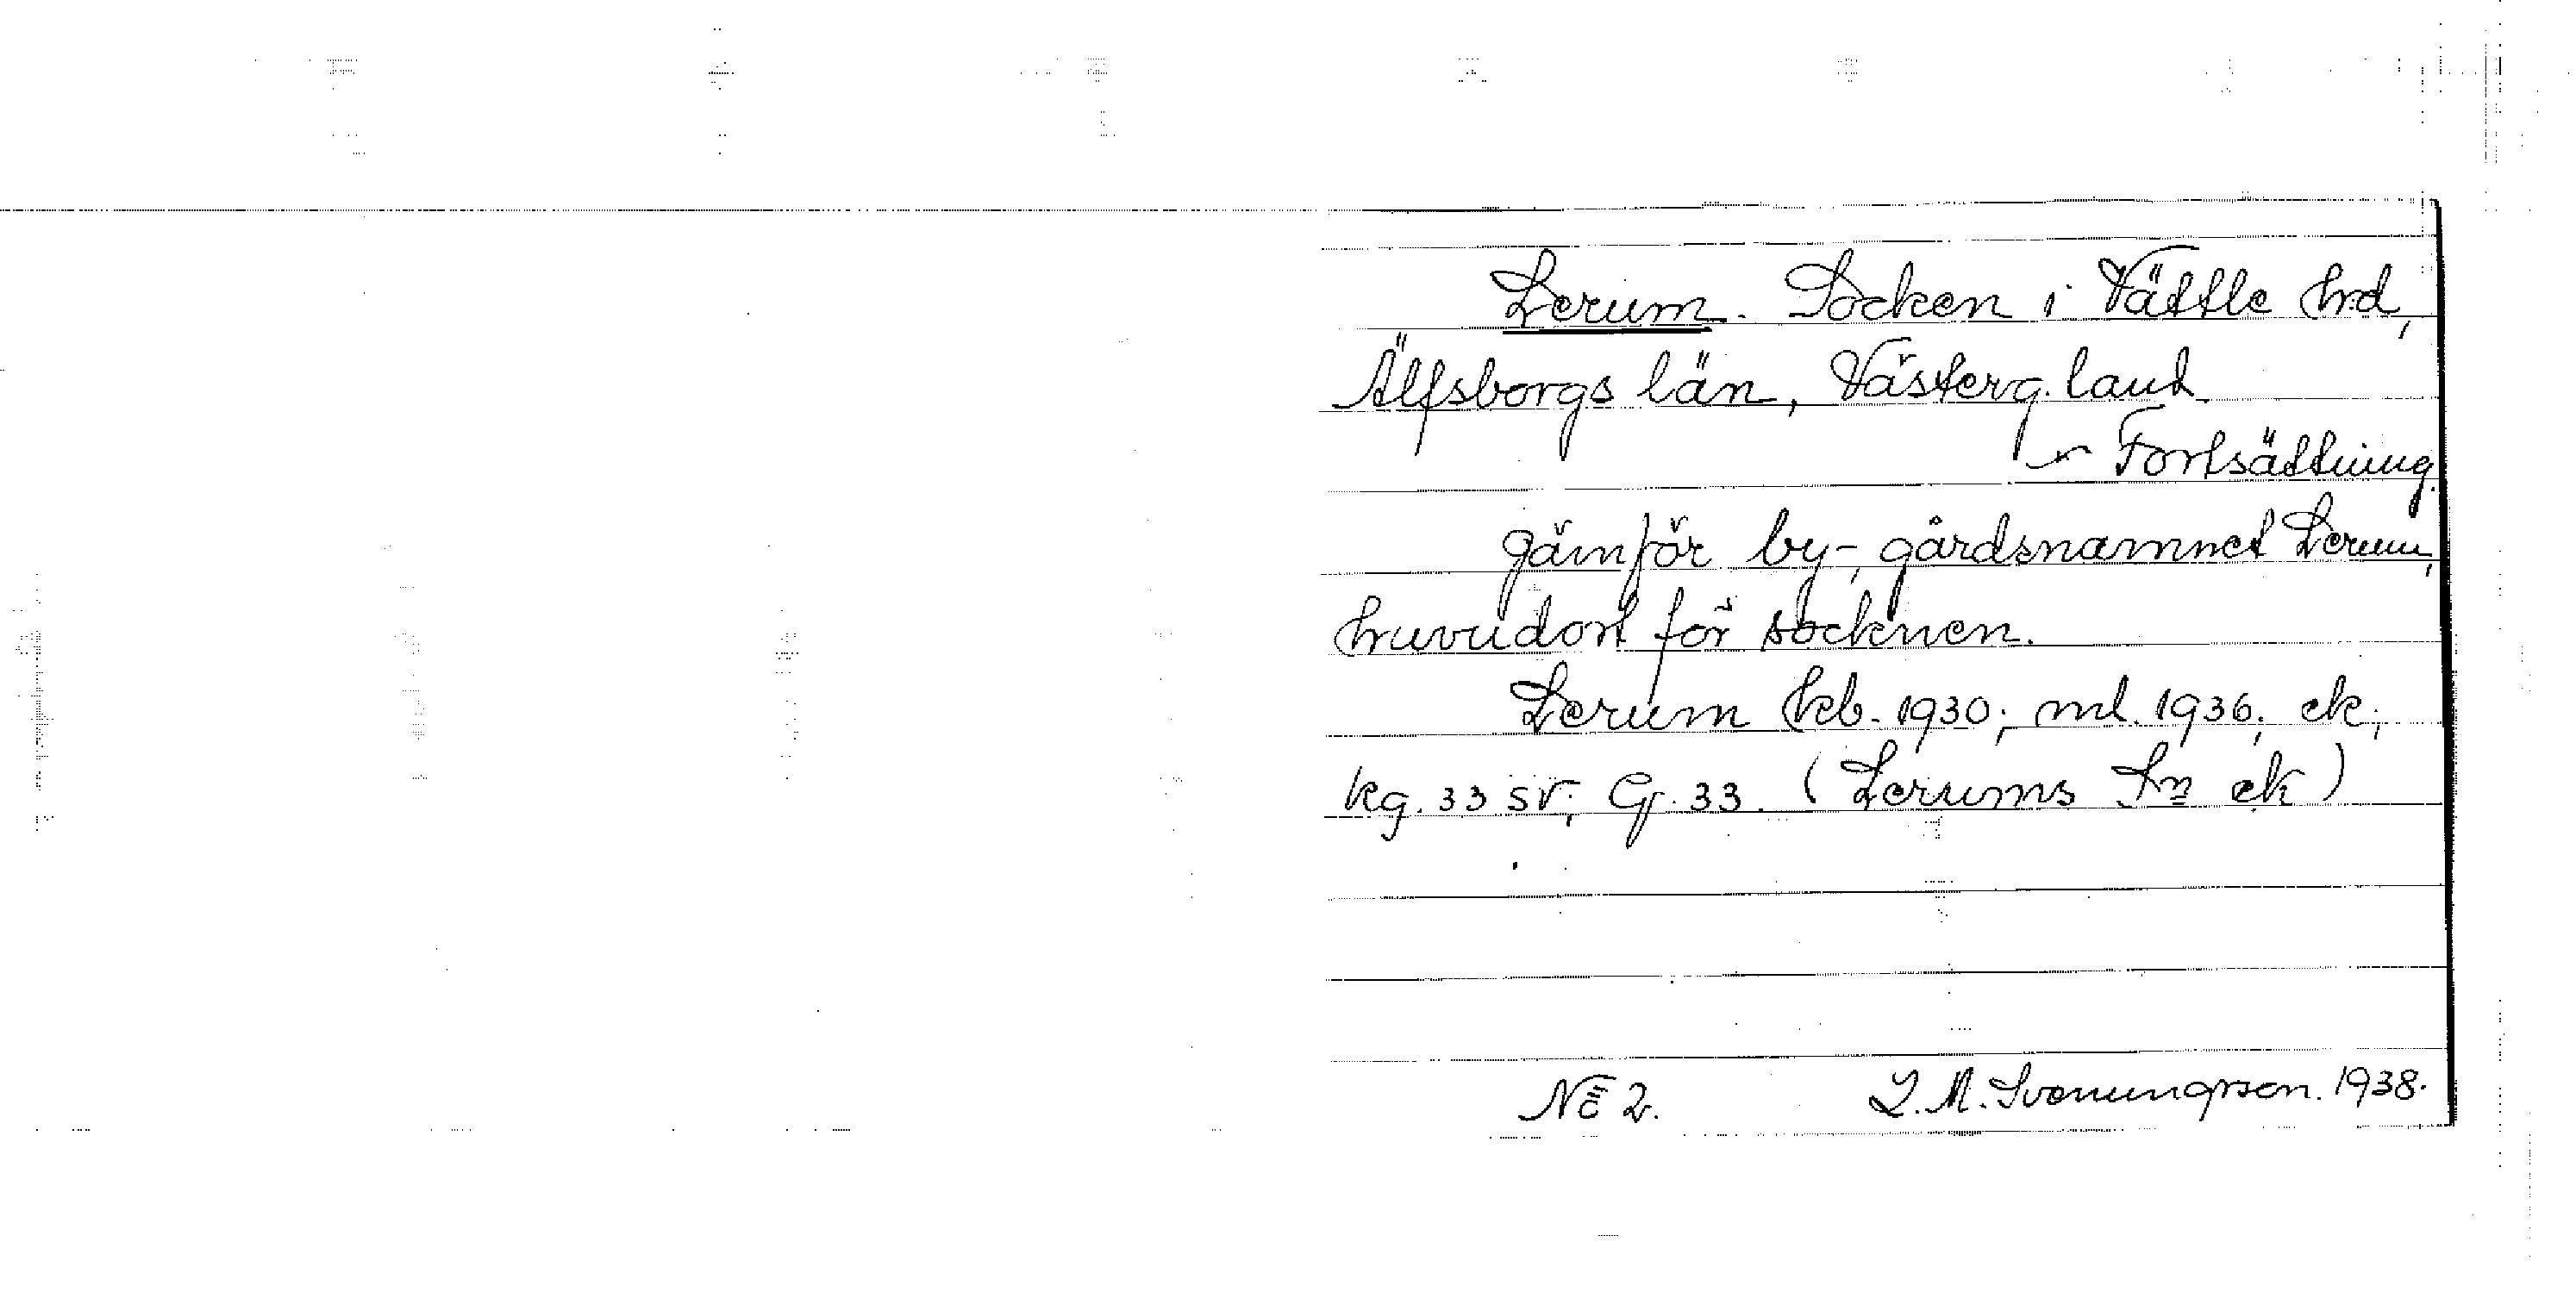 Lerum. Socken i Vättle hrd,
Älfsborgs län, Västerg. land.
Fortsättning.
Jämför by-, gårdsnamnet Lerum,
huvudort för socknen.
Lerum kb. 1930; ml. 1936; ek;
kg. 33 sv; Gr. 33. (Lerums Sn ek)
No 2. L. M. Svenungsson. 1938.